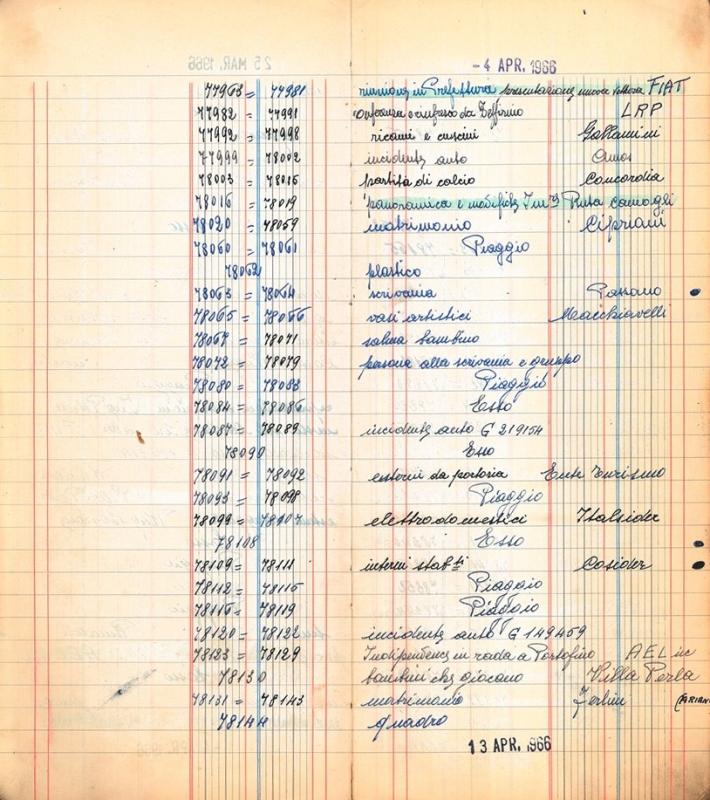 - 4 APR. 1966
77963 = 77981 riunione in Prefettura presentazione nuova vettura FIAT
77982 = 77991 conferenza e rinfresco da Zeffirino LRP
77992 = 77998 ricami e cuscini Gallamini
77999 = 78002 incidente auto Amos
78003 = 78015 partita di calcio Concordia
78016 = 78019 panoramica e modifiche Ruta Camogli
78020 = 78059 matrimonio Cipriani
78060 = 78061 Piaggio
78062 plastico
78063 = 78064 scrivania Passano
78065 = 78066 vasi artistici Macchiavelli
78067 = 78071 salma bambino
78072 = 78079 persona alla scrivania e gruppo
78080 = 78083 Piaggio
78084 = 78086 Esso
78087 = 78089 incidente auto G 219154
78090 Esso
78091 = 78092 esterni da portoria Ente Turismo
78093 = 78098 Piaggio
78099 = 78107 elettrodomestici Italsider
78108 Esso
78109 = 78111 interni stab.ti Cosider
78112 = 78115 Piaggio
78116 = 78119 Piaggio
78120 = 78122 incidente auto G 149459
78123 = 78129 Indipendence in rada a Portofino AEL inc
78130 bambini che giocano Villa Perla
78131 = 78143 matrimonio Zerbini
78144 quadro
13 APR. 1966